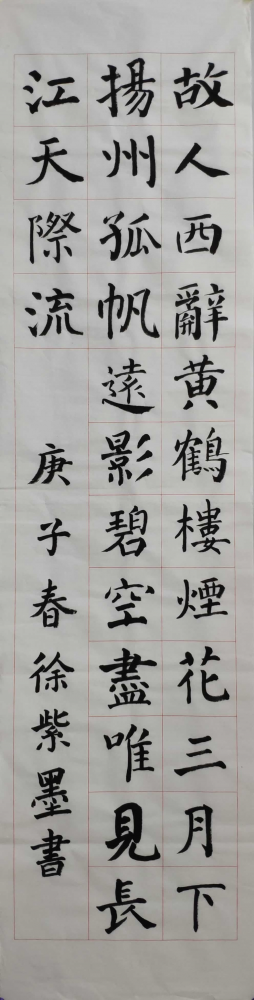 故人西辭黄鶴樓煙花三月下
揚州孤帆遠影碧空盡唯見長
江天際流
庚子春徐紫墨書